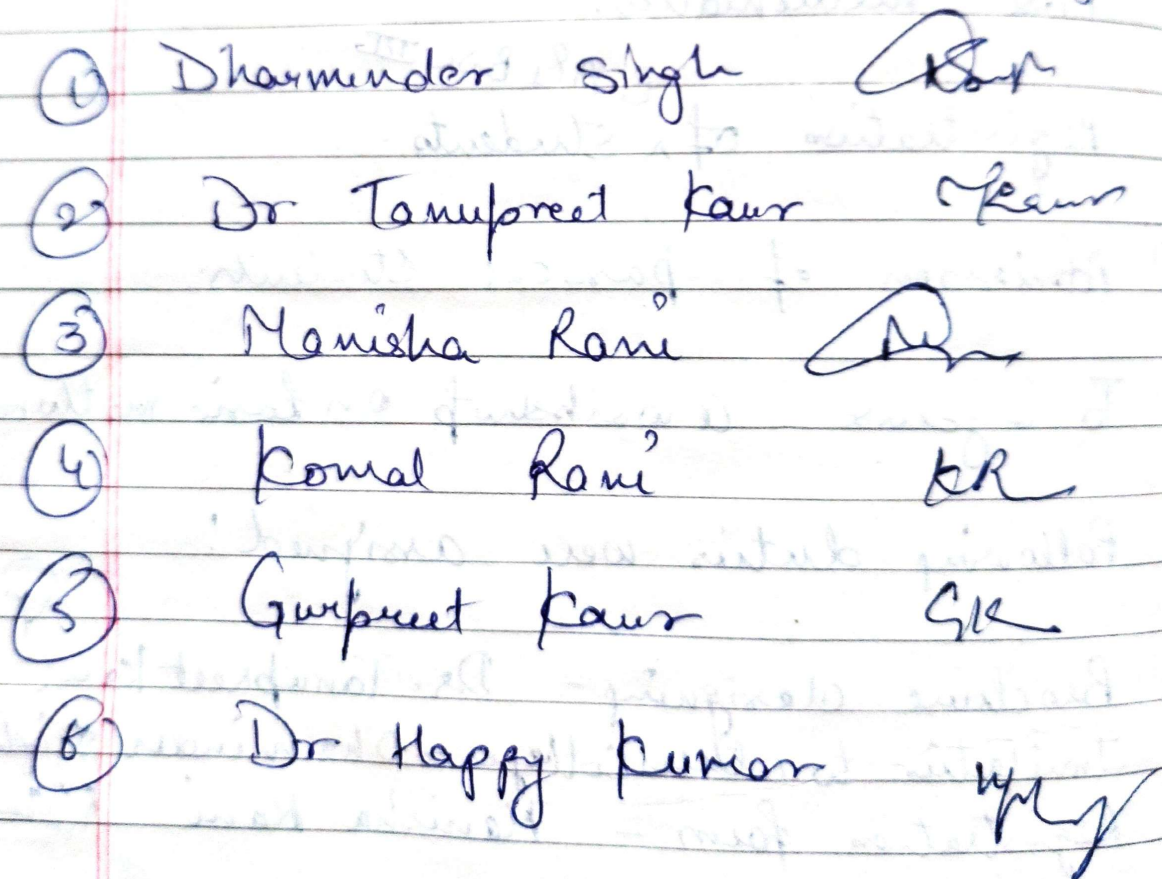 1 Dharminder Singh
2 Dr Tanupreet Kaur Kaur
3 Manisha Rani
4 Komal Rani KR
5 Gurpreet Kaur GK
6 Dr Happy Kumar